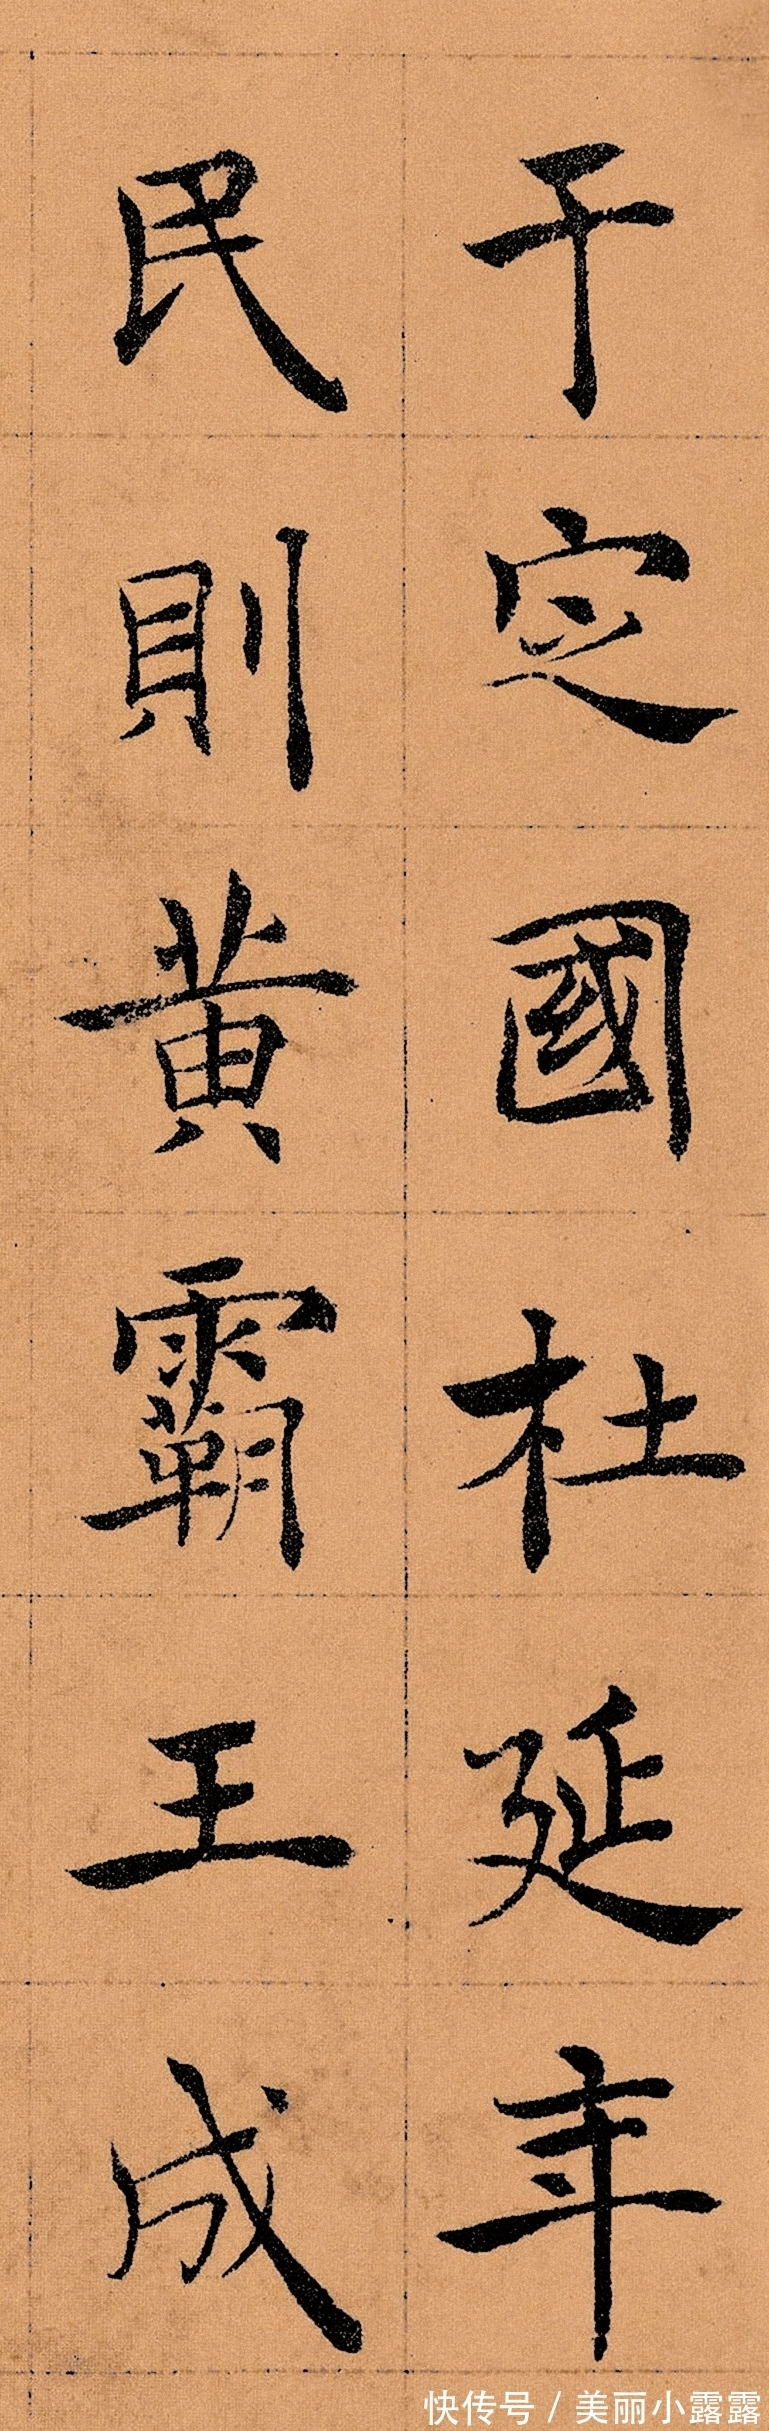 于定國杜延年
民則黃霸王成
快传号 / 美丽小露露